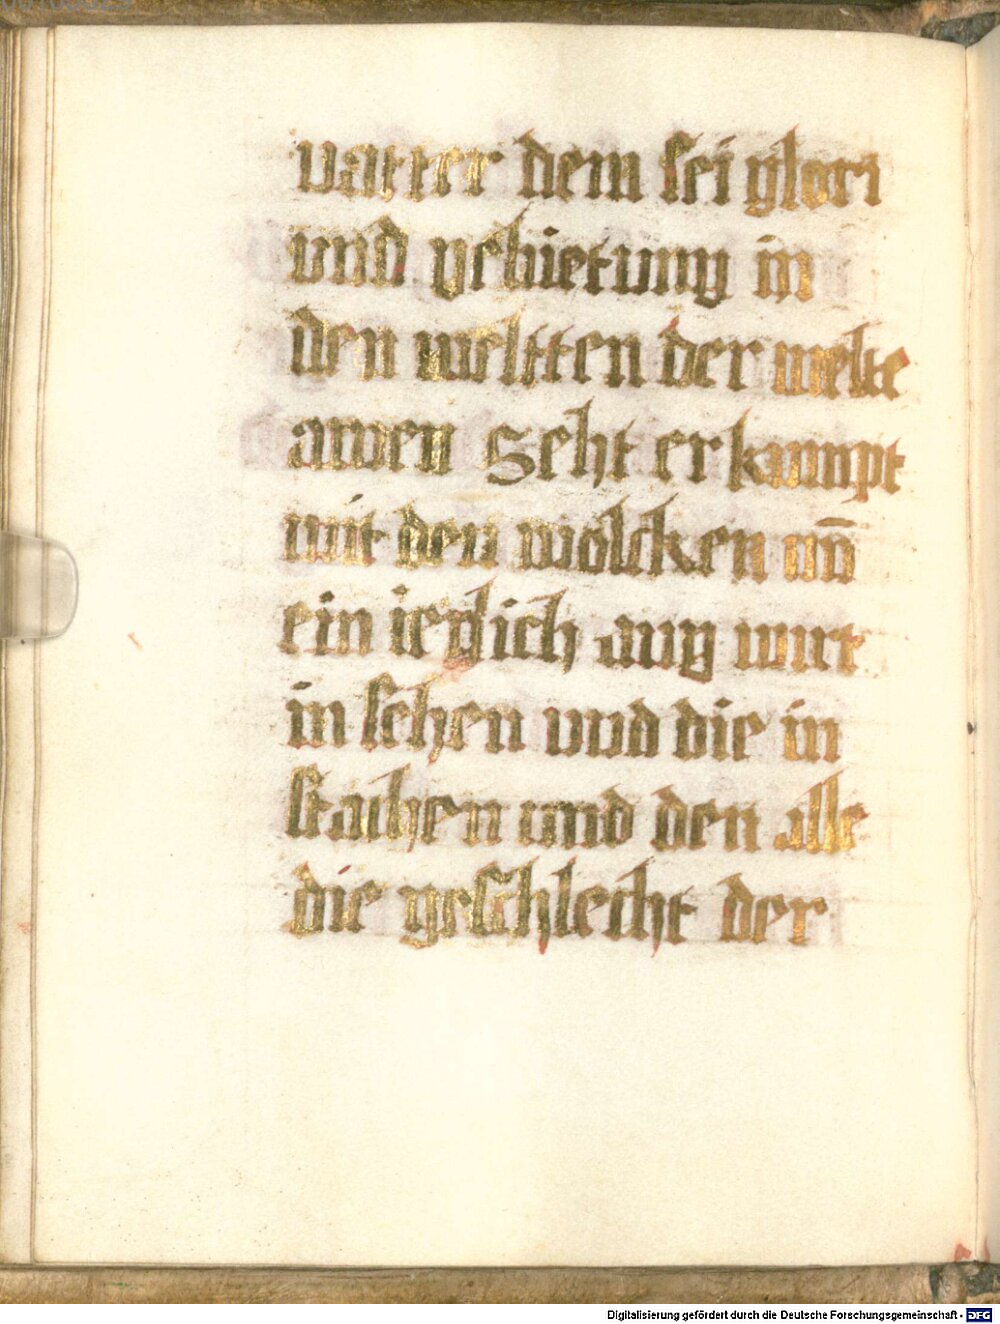 vatter dem sei glori
vnd gebietung in
den weltten der welte
amen Seht er kumpt
mit den wolcken un̄
ein ieglich aug wirt
in sehen vnd die in
stachen vnd den alle
die geschlecht der
Digitalisierung gefördert durch die Deutsche Forschungsgemeinschaft - DFG